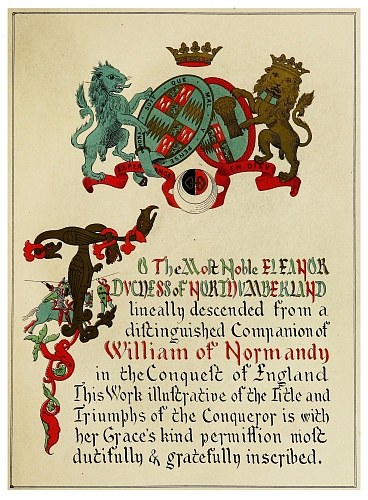 SOIT QUE MAL Y PENSE
To The Most Noble ELEANOR
DUCHESS of NORTHUMBERLAND
lineally descended from a
distinguished Companion of
William of Normandy
in the Conquest of England
This Work illustrative of the Title and
Triumphs of the Conqueror is with
her Grace's kind permission most
dutifully & gratefully inscribed.